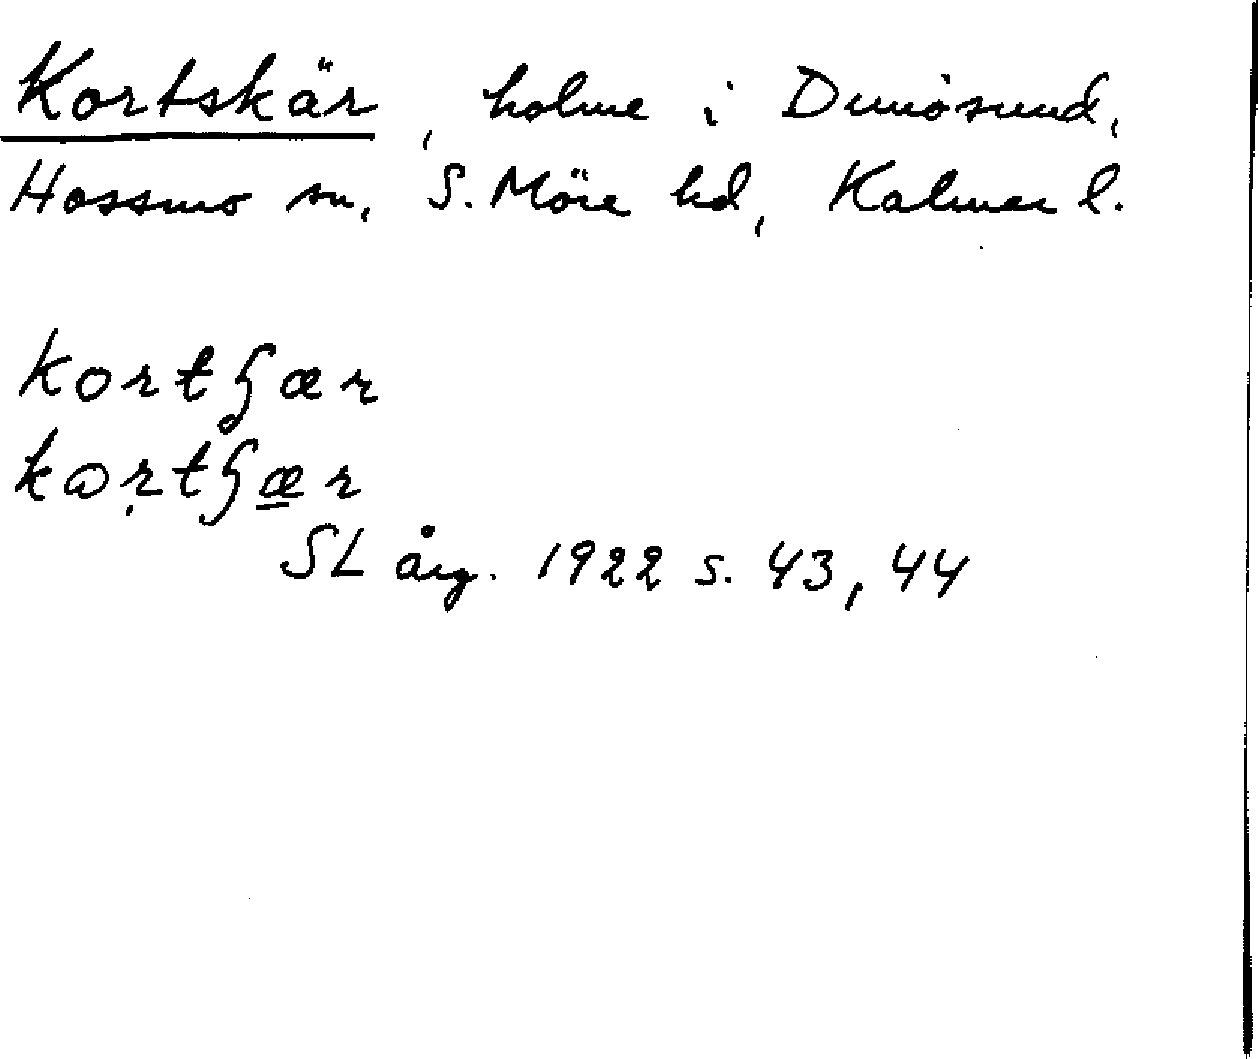 Kortskär, holme i Dunösund,
Hossmo sn, S. Möre hd, Kalmar l.
kortʃær
kɷrtʃæ̱r
SL årg. 1922 s. 43, 44